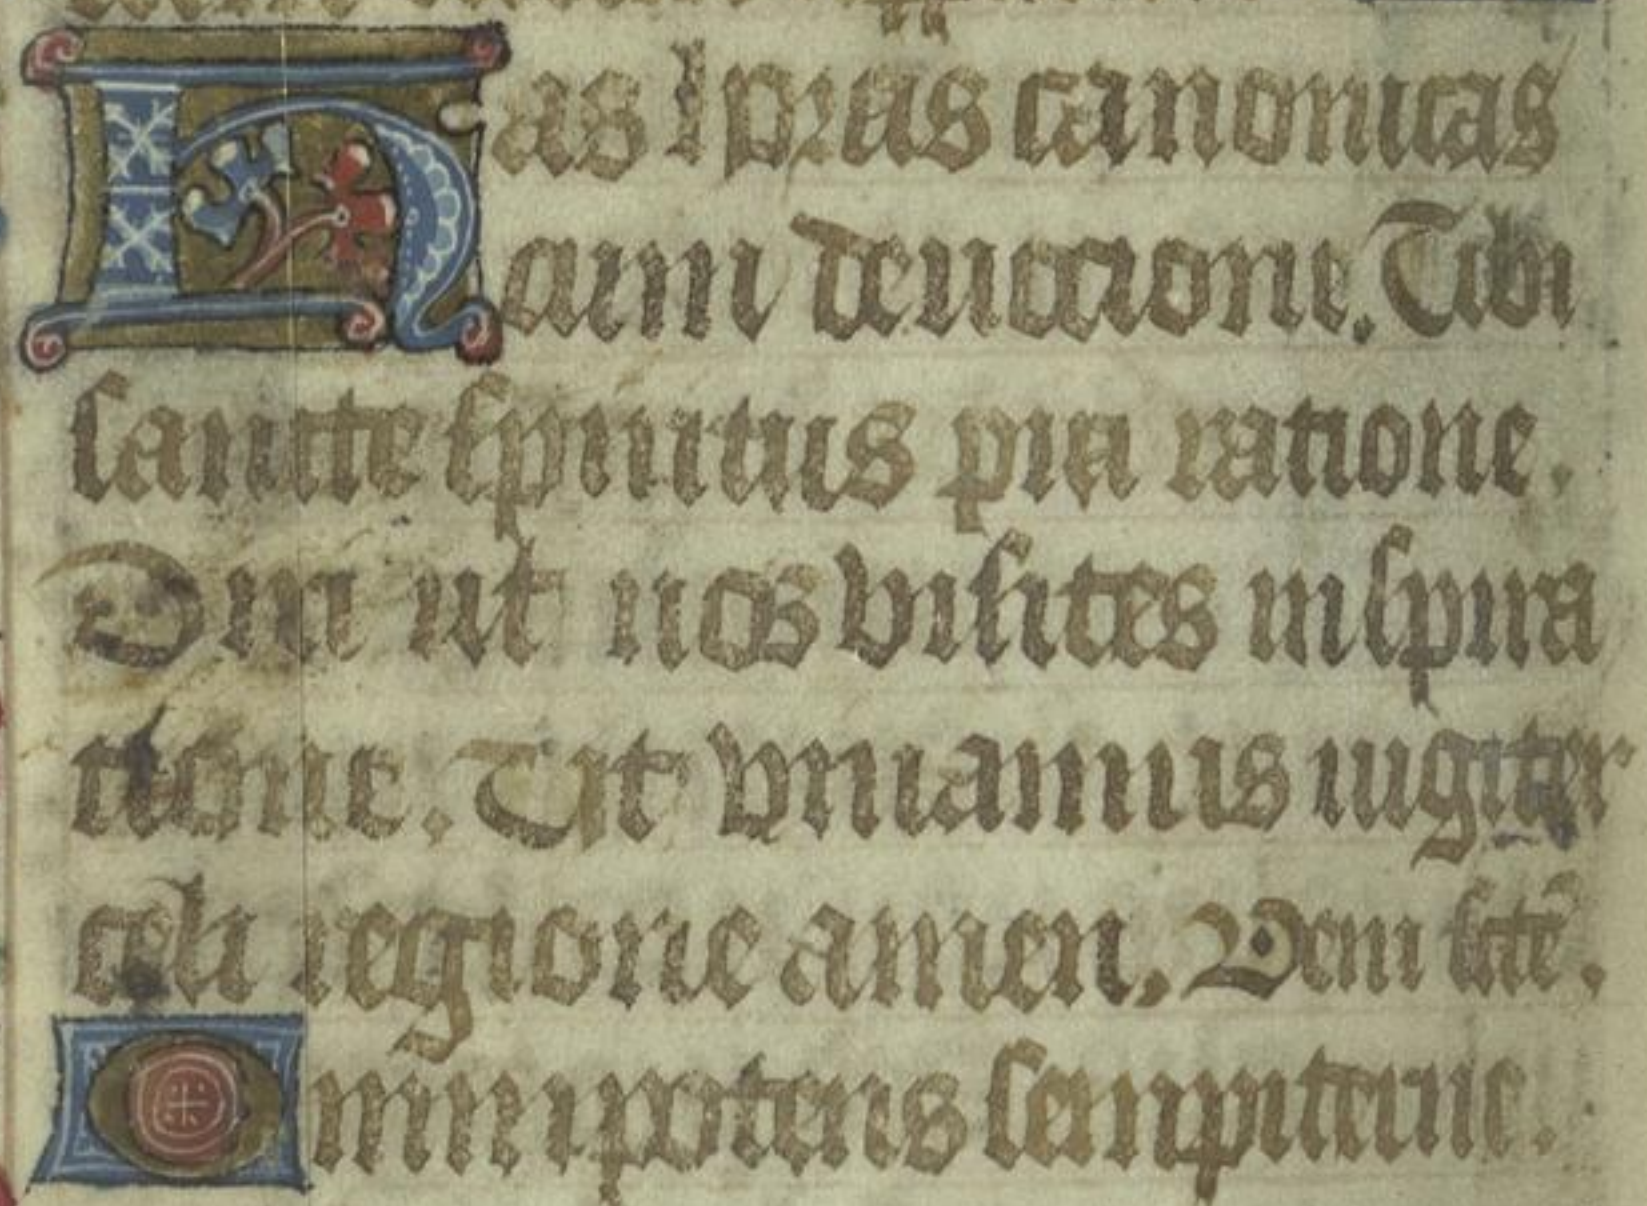 Has horas canonicas
cum deuocione. Tibi
sancte spiritus pia ratione.
ut nos visites inspira
tione. Ut viuamus iugiter
celi regione amen. Veni scte.
Omnipotens sempiterne.